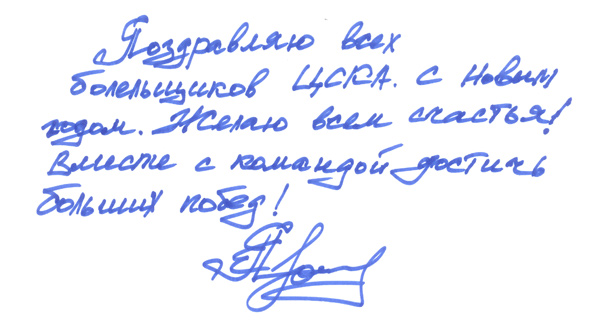 Поздравляю всех
болельщиков ЦСКА. с Новым
годом. Желаю всем счастья!
Вместе с командой достичь
больших побед!